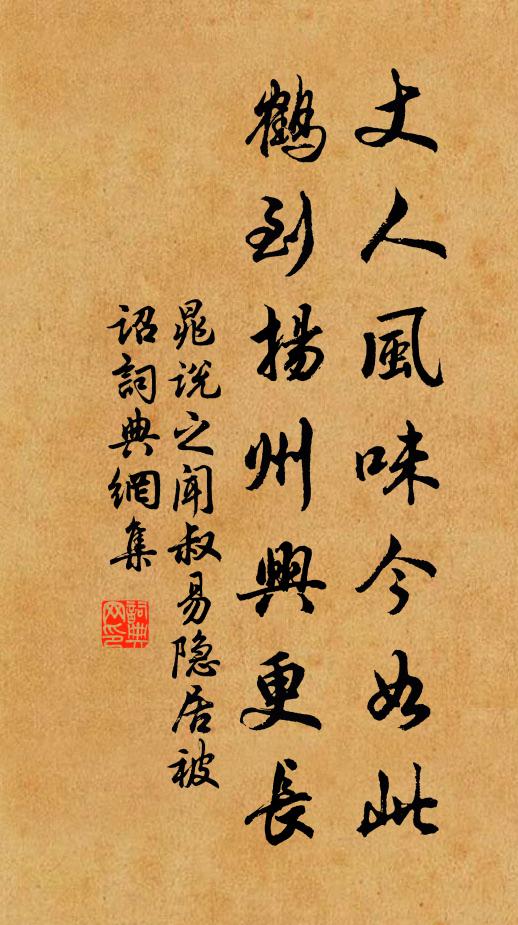 丈人風味今如此
鶴到揚州興更長
晁说之闻叔易隐居被
詔詞典網集
詞典網印